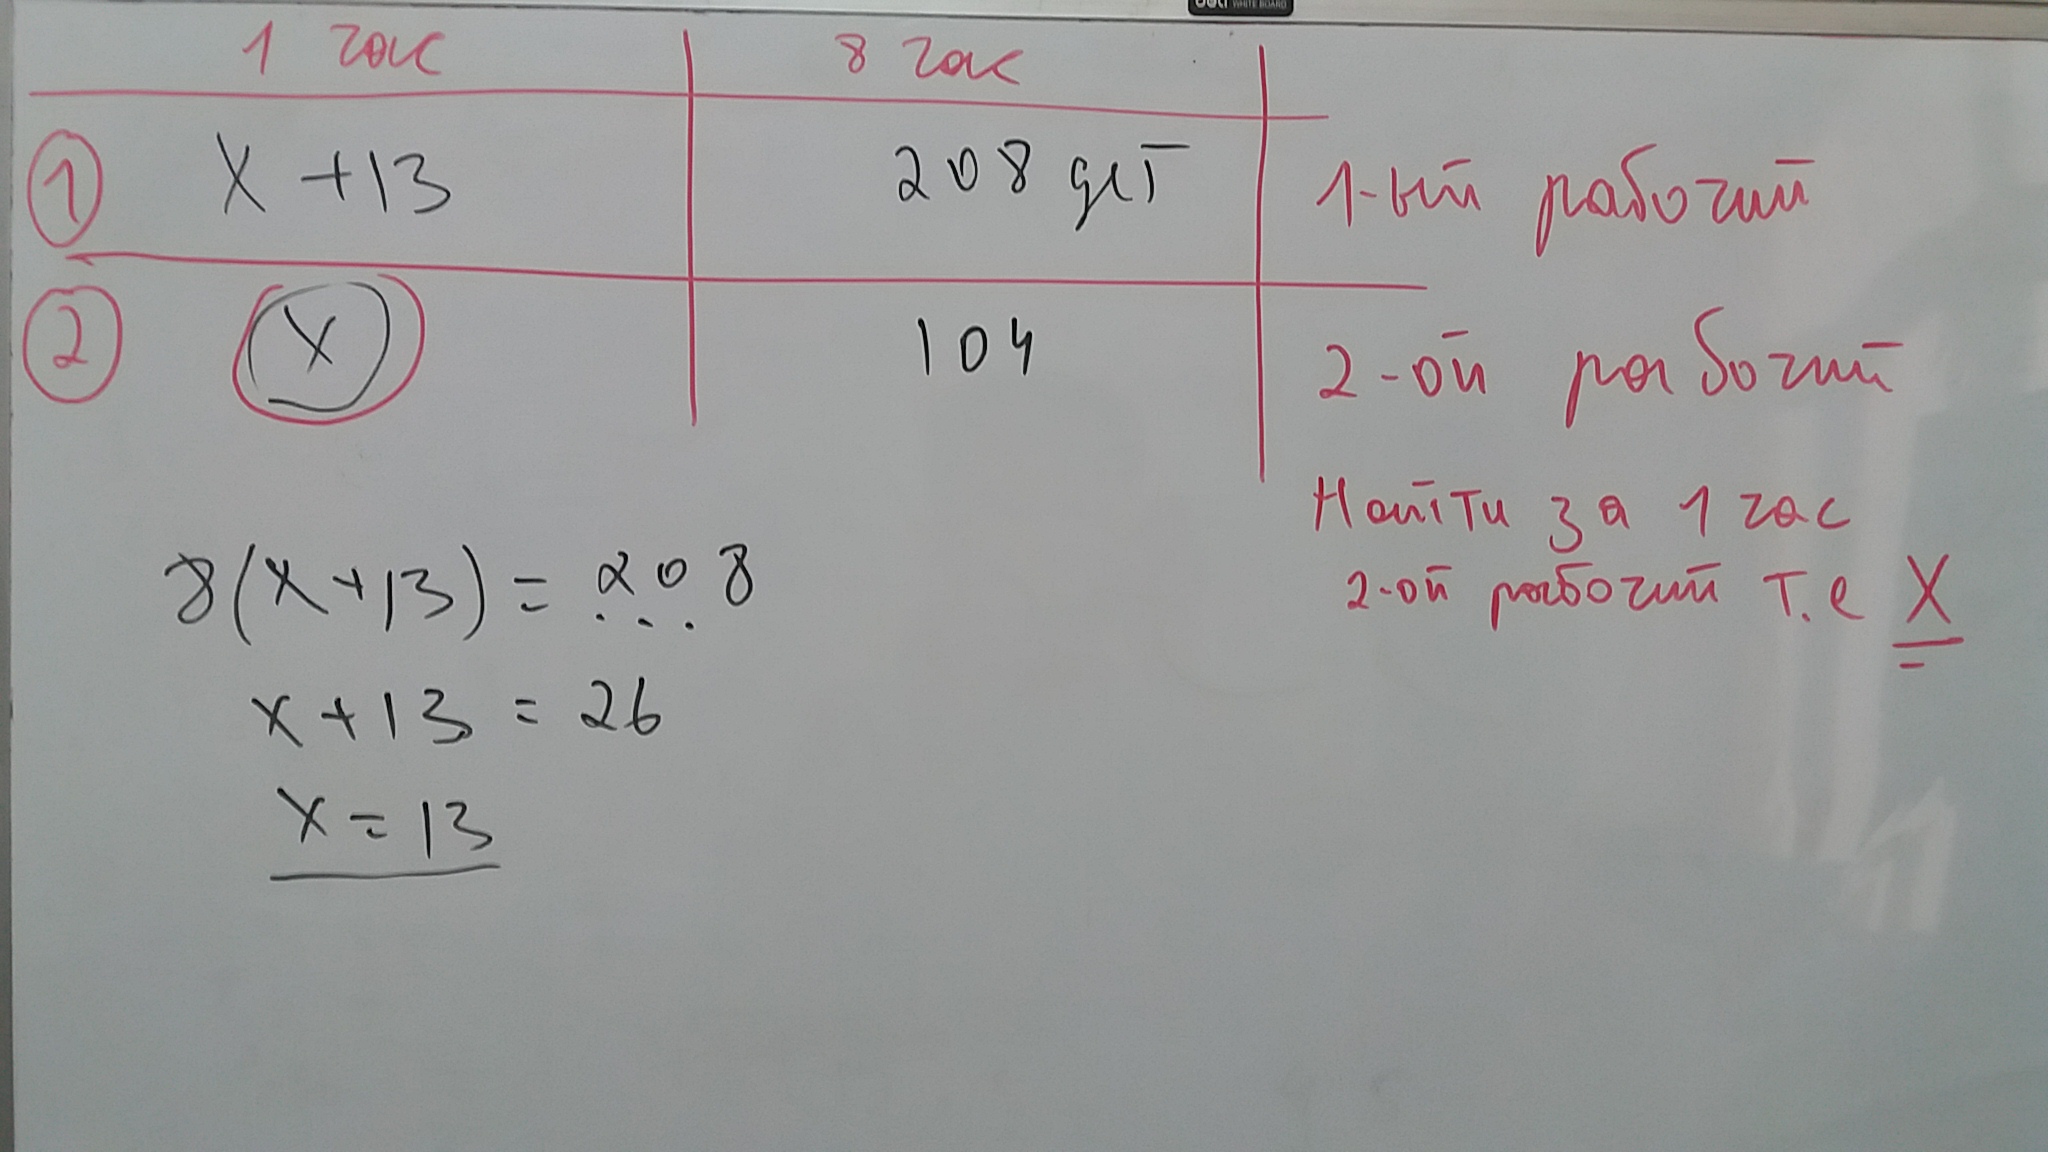 deli WHITE BOARD
1 час 8 час
1 x+13 208 дет 1-ый рабочий
2 x 104 2-ой рабочий
Найти за 1 час
2-ой рабочий т.е X
8(x+13)=208
x+13=26
x=13